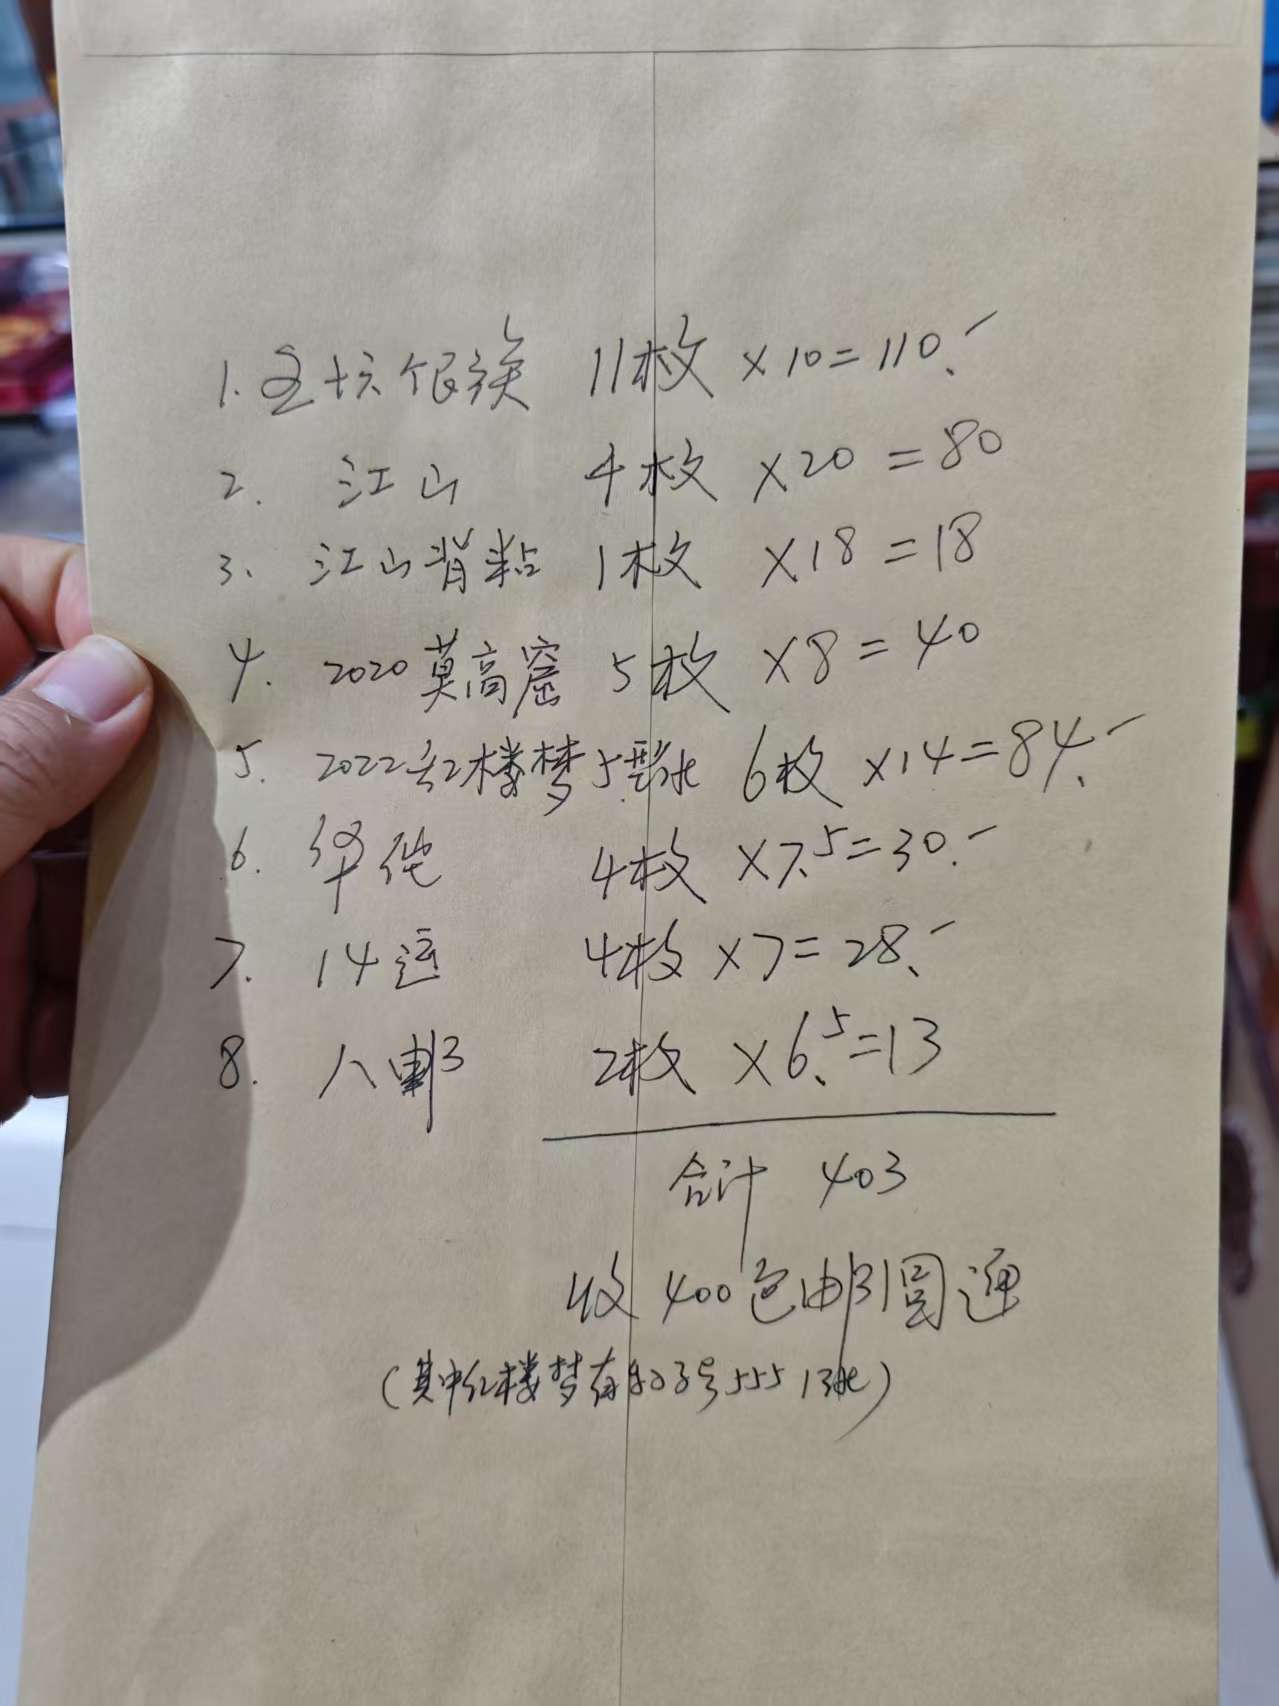 1. 五十六个民族 11枚 ×10=110.-
2. 江山 4枚 ×20=80
3. 江山背粘 1枚 ×18=18
4. 2020莫高窟 5枚 ×8=40
5. 2022红楼梦5 6枚 ×14=84.-
6. 华佗 4枚 ×7.5=30.-
7. 14运 4枚 ×7=28.-
8. 八 2枚 ×6.5=13
合计 403
收400包邮圆通
(其中红楼梦有 号555 1张)